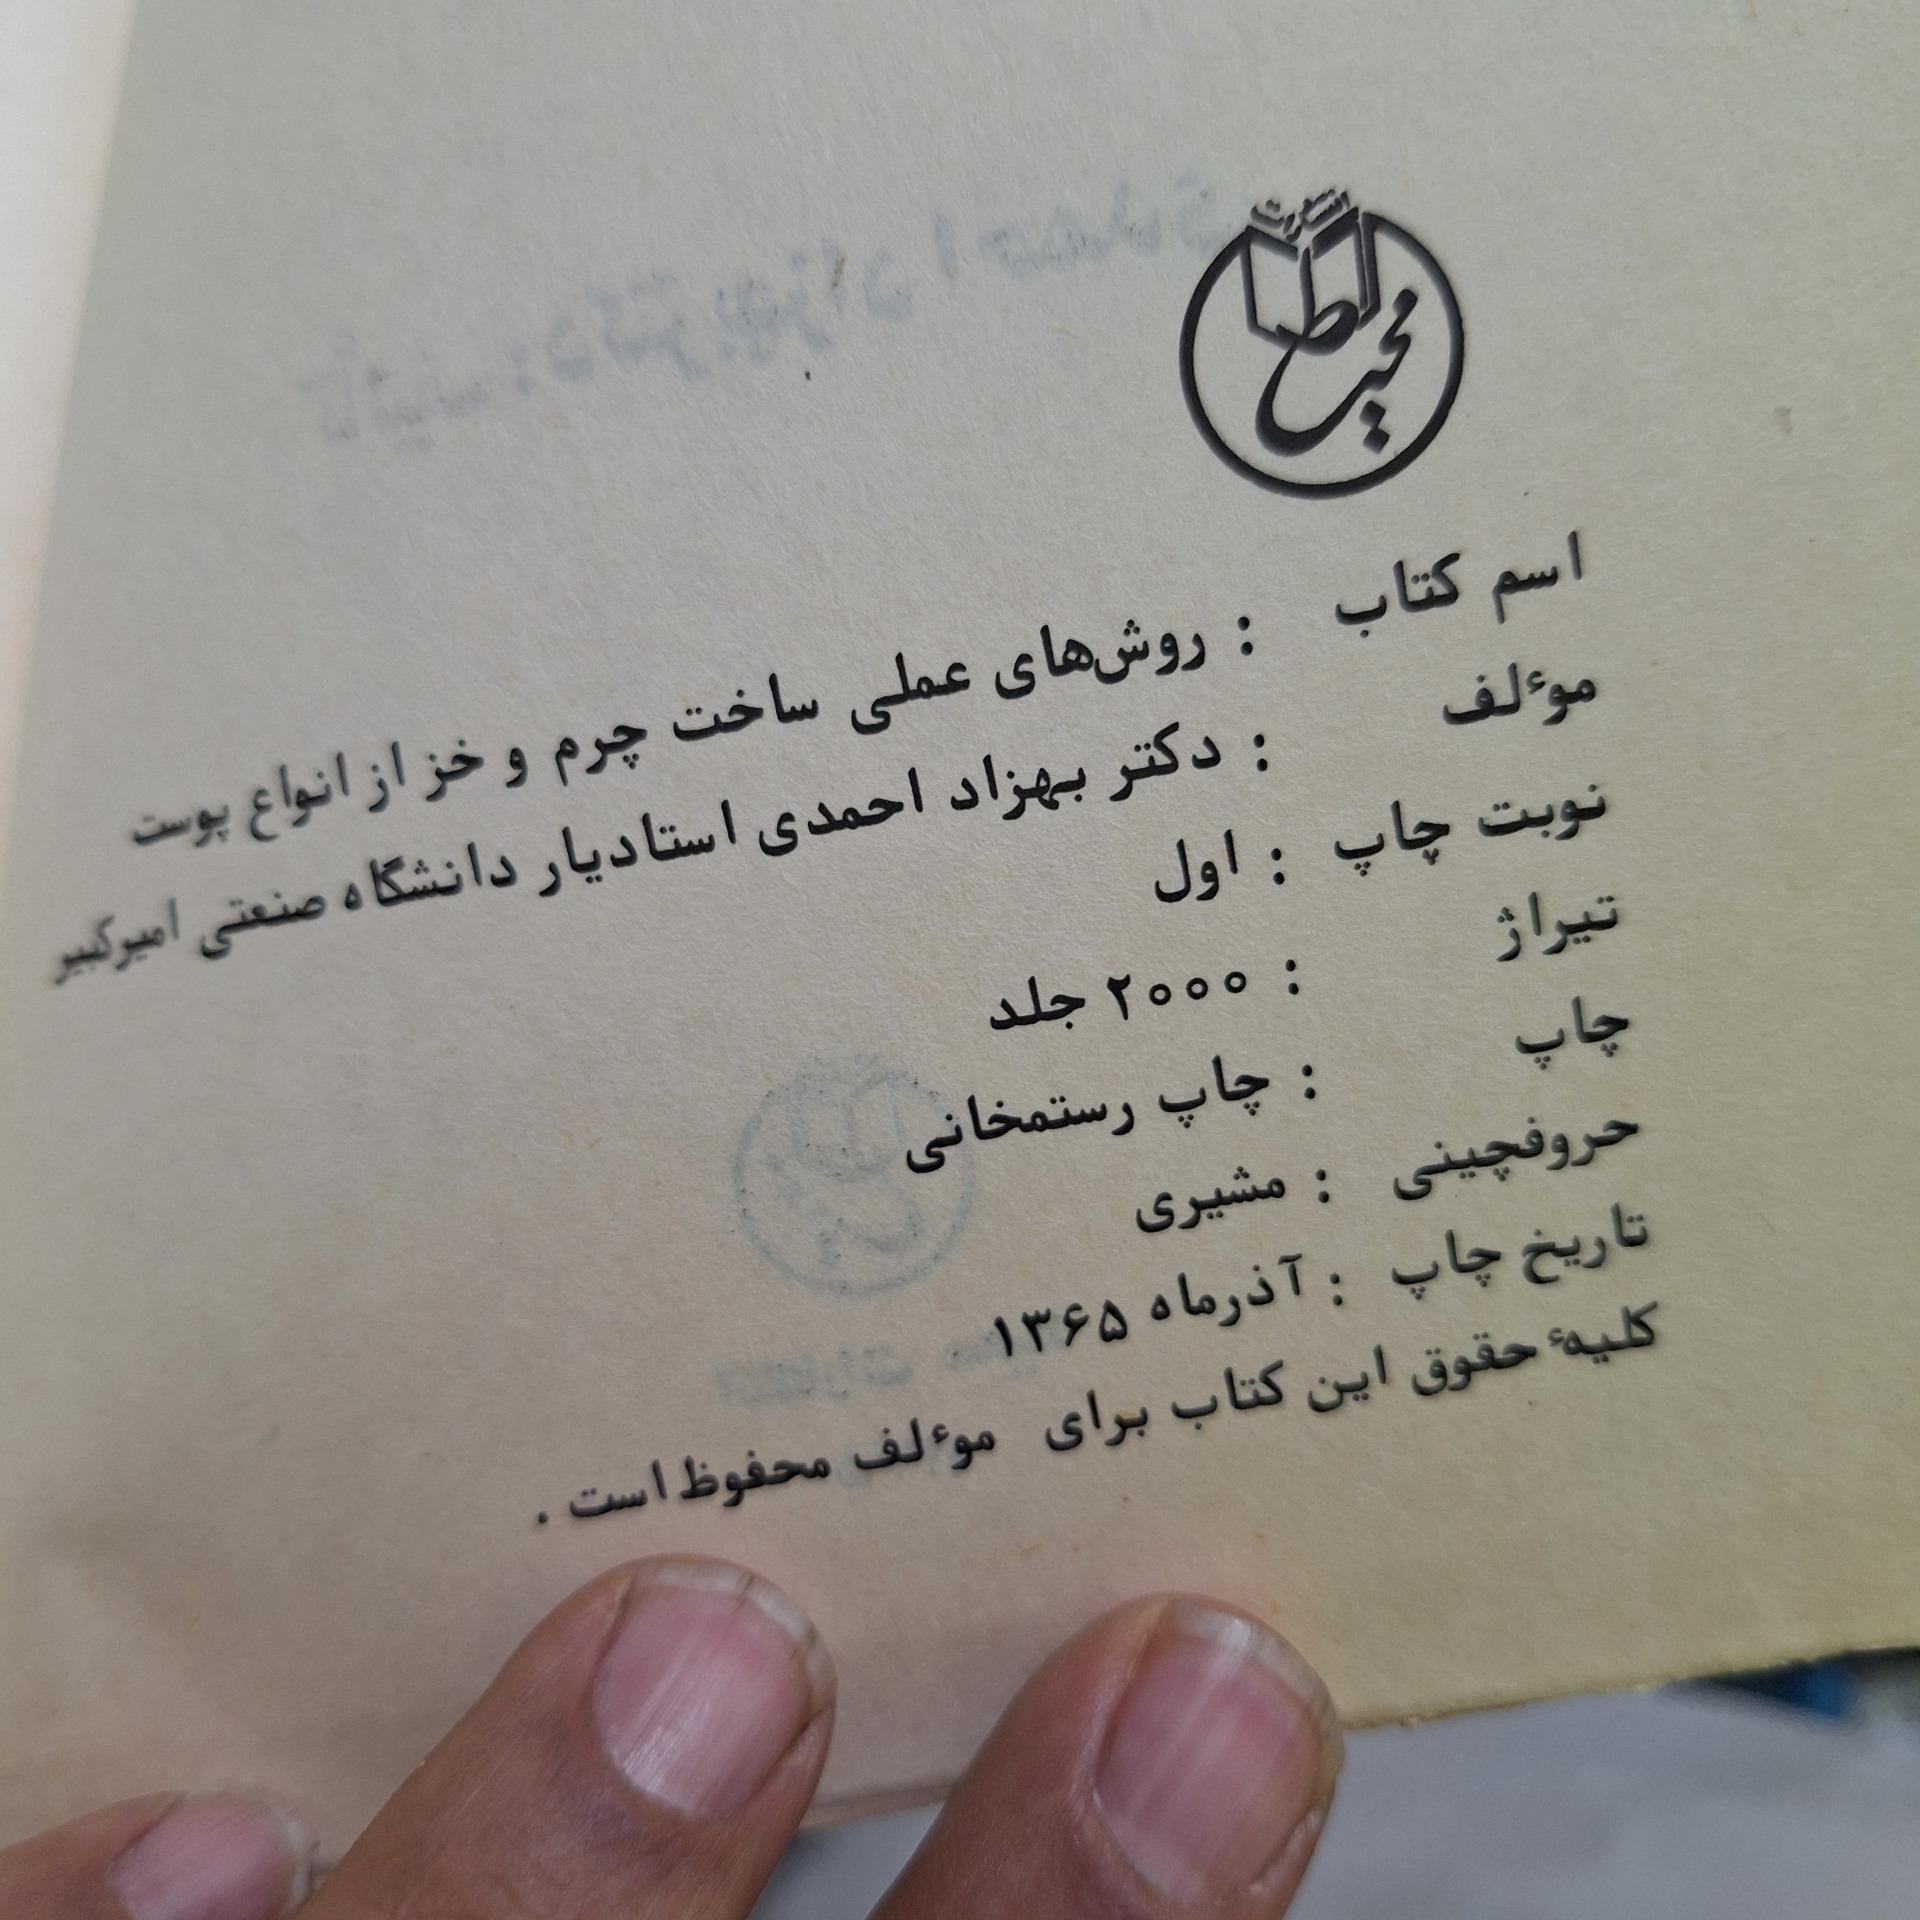 انتشارات محیط
اسم کتاب : روش‌های عملی ساخت چرم و خز از انواع پوست
موٴلف : دکتر بهزاد احمدی استادیار دانشگاه صنعتی امیرکبیر
نوبت چاپ : اول
تیراژ : ۲۰۰۰ جلد
چاپ : چاپ رستمخانی
حروفچینی : مشیری
تاریخ چاپ : آذرماه ۱۳۶۵
کلیهٔ حقوق این کتاب برای موٴلف محفوظ است .